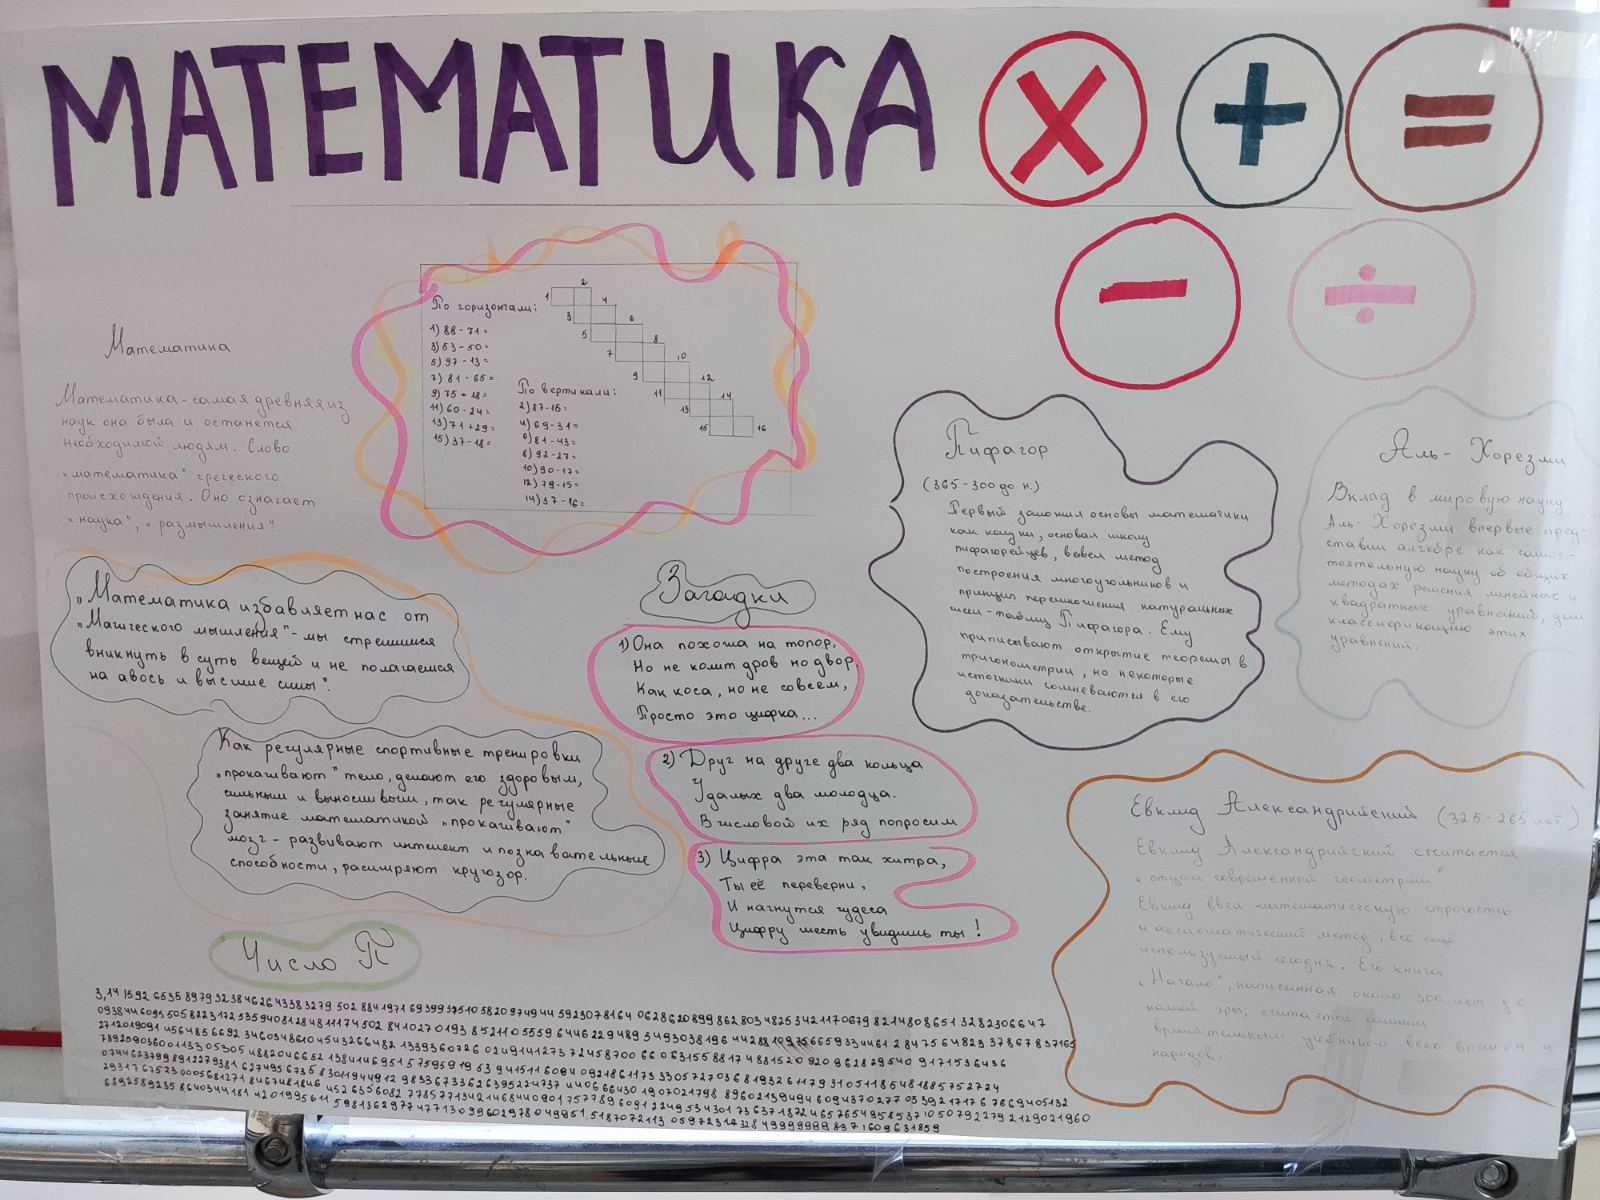 МАТЕМАТИКА
× + =
− ÷
Математика
Математика - самая древняя из
наук она была и останется
необходимой людям. Слово
„математика" греческого
происхождения. Оно означает
„наука", „размышления".
По горизонтали:
1) 88 - 71 =
3) 53 - 50 =
5) 97 - 13 =
7) 81 - 65 =
9) 75 - 18 =
11) 60 - 24 =
13) 71 + 29 =
15) 37 - 18 =
По вертикали:
2) 87 - 15 =
4) 69 - 31 =
6) 81 - 43 =
8) 92 - 27 =
10) 90 - 17 =
12) 79 - 15 =
14) 37 - 16 =
1 2
3 4
5 6
7 8
9 10
11 12
13 14
15 16
„Математика избавляет нас от
„Магического мышления" - мы стремимся
вникнуть в суть вещей и не полагаемся
на авось и высшие силы".
Как регулярные спортивные тренировки
„прокачивают" тело, делают его здоровым,
сильным и выносливым, так регулярные
занятие математикой „прокачивают"
мозг - развивают интелект и познавательные
способности, расширяют кругозор.
Загадки
1) Она похожа на топор,
Но не колит дров но двор,
Как коса, но не совсем,
Просто это цифра...
2) Друг на друге два кольца
Удалых два молодца.
В числовой их ряд попросим
3) Цифра эта так хитра,
Ты её переверни,
И начнутся чудеса
Цифру шесть увидишь ты!
Пифагор
(365 - 300 до н.)
Первый заложил основы математики
как науки, основал школу
пифагорейцев, ввёл метод
построения многоугольников и
принцип перемножения натуральных
чисел - таблицу Пифагора. Ему
приписывают открытие теоремы в
тригонометрии, но некоторые
источники сомневаются в его
доказательстве.
Аль- Хорезми
Вклад в мировую науку
Аль- Хорезми впервые пред-
ставил алгебре как самос-
тоятельную науку об общих
методах решения линейных и
квадратных уравнений, дал
классификацию этих
уравнений.
Евклид Александрийский (325 - 265 лет)
Евклид Александрийский считается
„отцом современной геометрии"
Евклид ввел математическую строгость
и аксиоматический метод, всё ещё
используемый сегодня. Его книга
„Начало", написанная около 300 лет до
нашей эры, считается самым
влиятельным учебником всех времён и
народов.
Число П
3,14 1592 6535 8979 3238 4626 4338 3279 502 884 1971 6939937510 5820974944 5923078164 0628620899 8628034825 3421170679 8214808651 3282306647